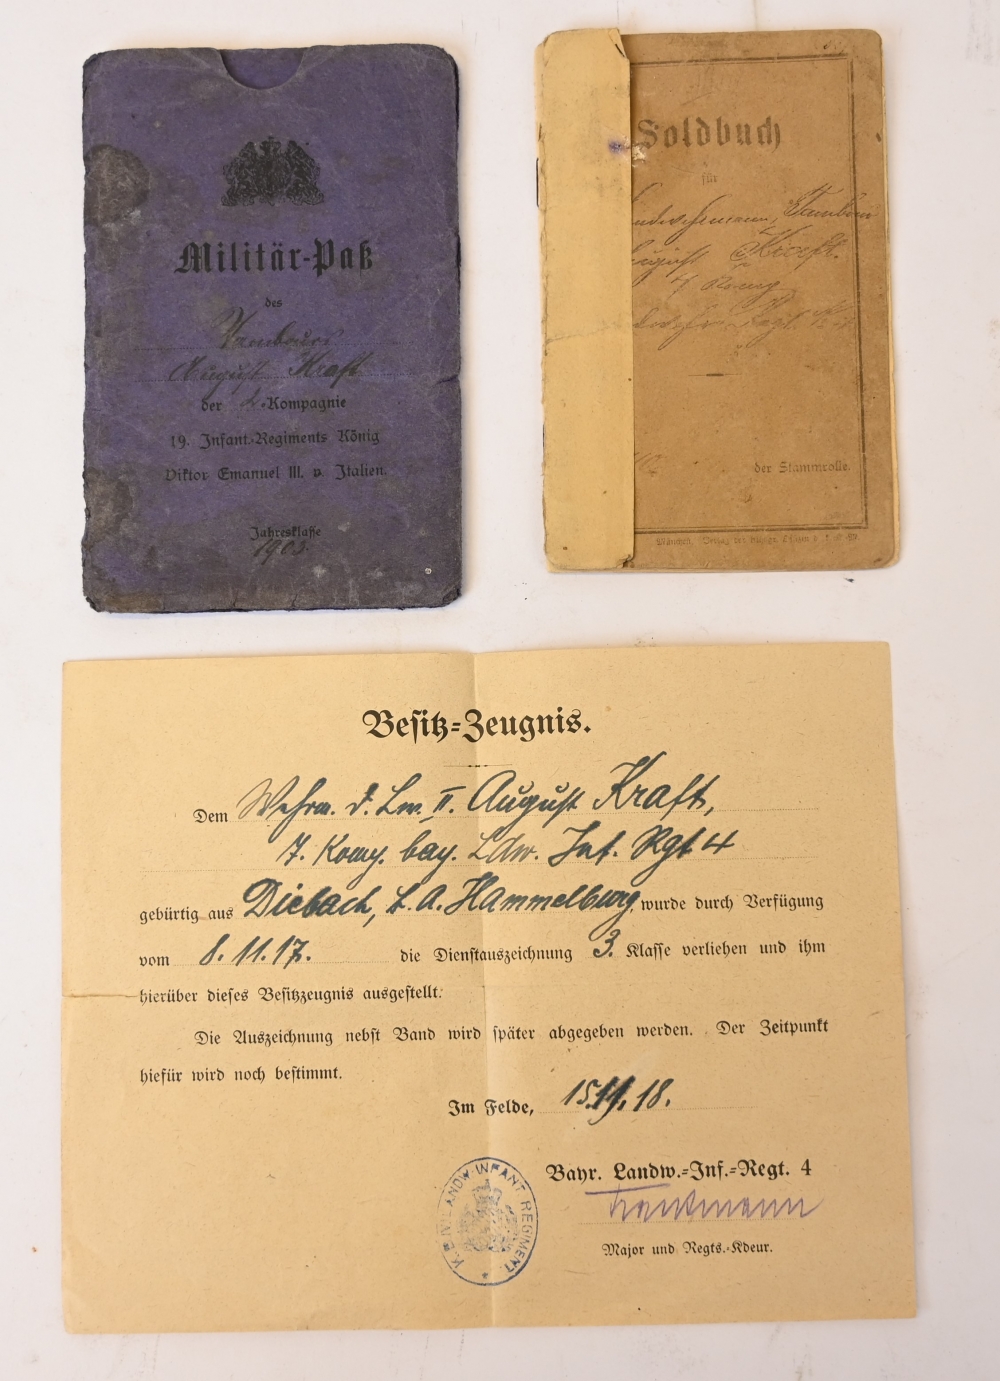 Militär-Paß
des
Tambour
August Kraft
der 2. Kompagnie
19. Infant.-Regiments König
Viktor Emanuel III. v. Italien.
Jahresklasse
1903.
Soldbuch
für
Tambour
August Kraft.
4
der Stammrolle.
München.
Besitz-Zeugnis.
Dem Wehrm. d. Lw. II. August Kraft,
7. Komp. bay. Ldw. Inf. Rgt 4
gebürtig aus Diebach, b. A. Hammelburg, wurde durch Verfügung
vom 8. 11. 17. die Dienstauszeichnung 3. Klasse verliehen und ihm
hierüber dieses Besitzzeugnis ausgestellt.
Die Auszeichnung nebst Band wird später abgegeben werden. Der Zeitpunkt
hiefür wird noch bestimmt.
Im Felde, 15. 11. 18.
Bayr. Landw.-Inf.-Regt. 4
Trautmann
Major und Regts.-Kdeur.
K. B. IV. LANDW. INFANT REGIMENT *